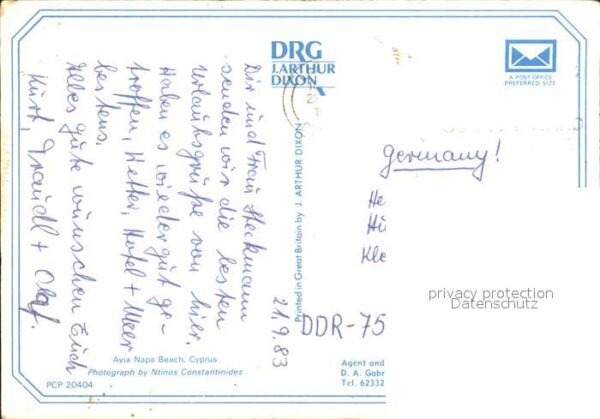 Dir und Frau Heckmann
senden wir die besten
Urlaubsgrüße von hier.
Haben es wieder gut ge-
troffen, Wetter, Hotel + Meer
bestens.
Alles gute wünschen Euch
Kurt, Traudl + Olaf.
21.9.83
DRG
J.ARTHUR
DIXON
A POST OFFICE
PREFERRED SIZE
Printed in Great Britain by J. ARTHUR DIXON
Germany!
He
Kle
DDR-75
privacy protection
Datenschutz
Ayia Napa Beach, Cyprus
Photograph by Ntinos Constantinides
PCP 20404
Agent and
D. A. Gabr
Tel. 62332